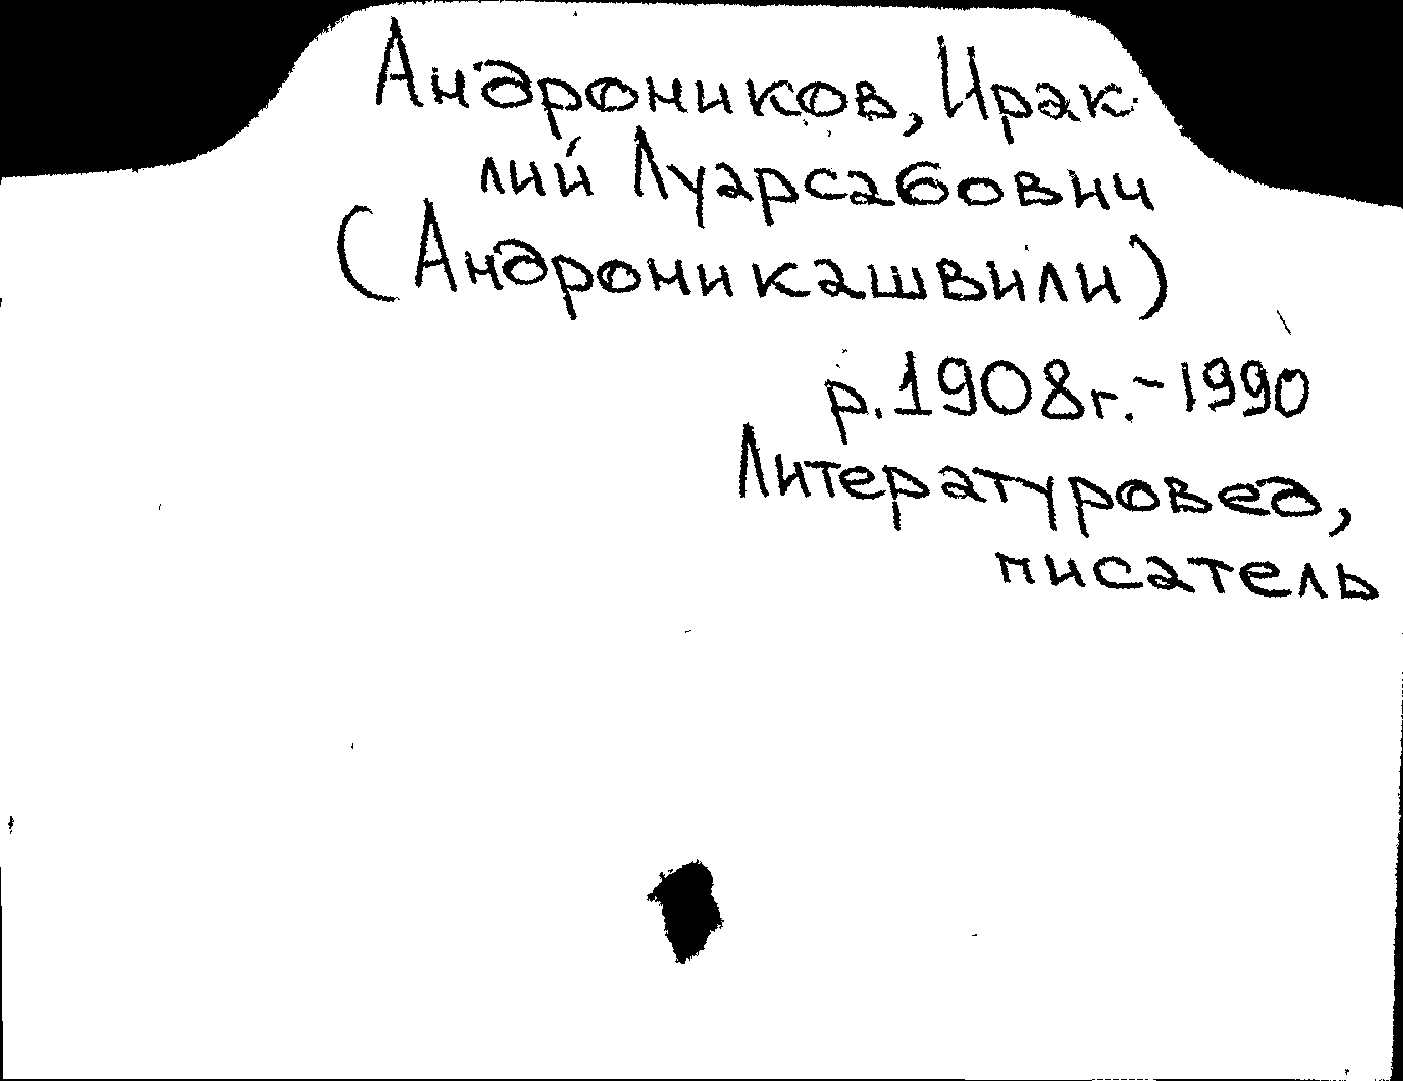 Андроников, Ирак
лий Луарсабович
(Андроникашвили)
р. 1908г. - 1990
Литературовед,
писатель